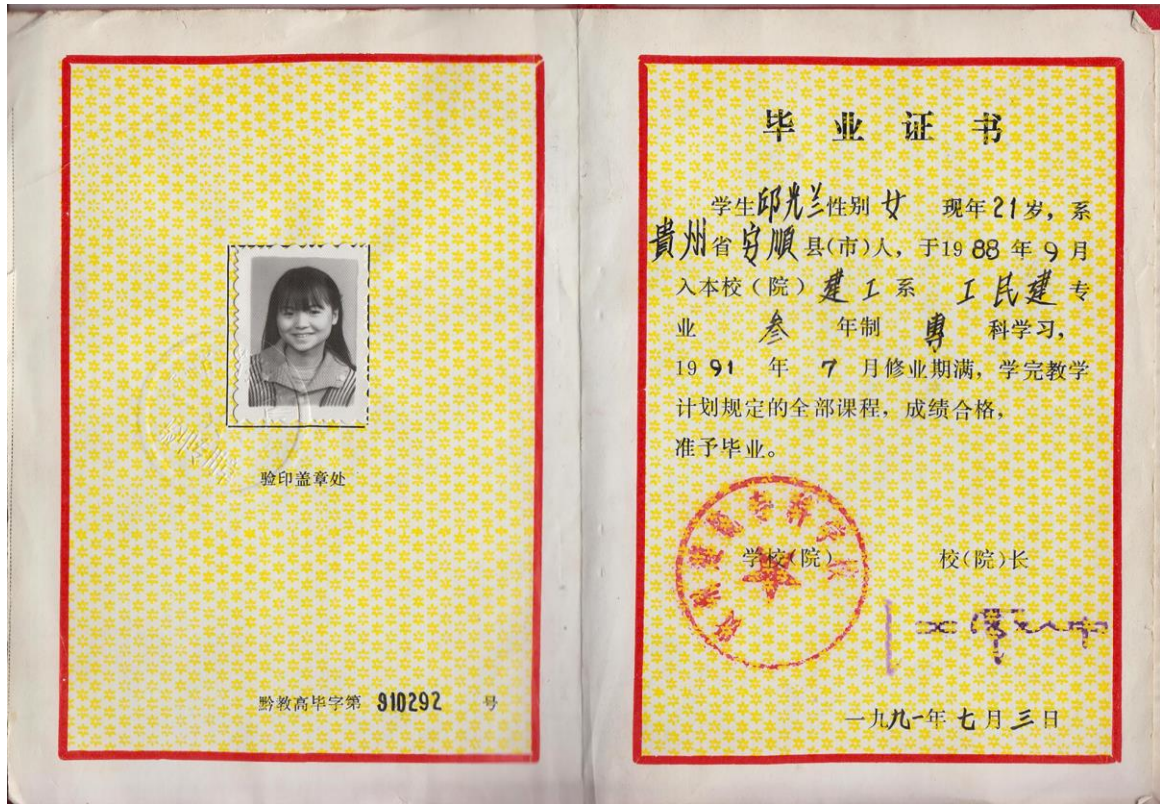 验印盖章处
黔教高毕字第 910292 号
毕业证书
学生邱光兰性别 女 现年21岁，系
貴州省安順县(市)人，于1988年9月
入本校(院) 建工系 工民建 专
业 叁 年制 專 科学习，
1991 年 7 月修业期满，学完教学
计划规定的全部课程，成绩合格，
准予毕业。
学校(院) 校(院)长
一九九一年七月三日